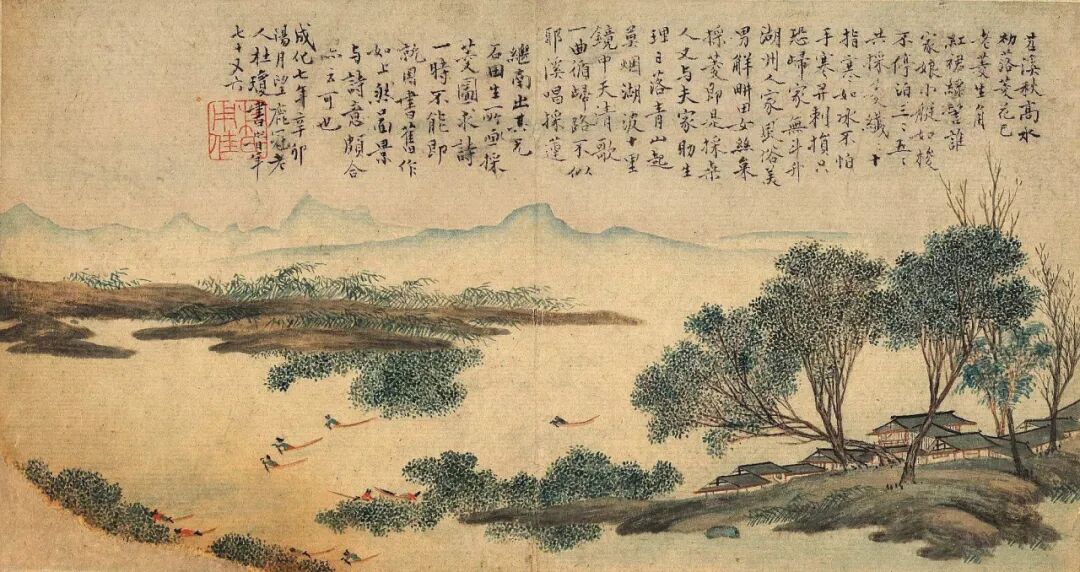 苕溪秋高水
初落菱花已
老菱生角
紅裙綠鬢誰
家娘小艇如梭
不停泊三三五五
共採菱纖纖十
指寒如冰不怕
手寒并刺損只
恐歸家無斗升
湖州人家風俗美
男解畊田女絲枲
採菱即是採桑
人又与夫家助生
理日落青山起
莫烟湖波十里
鏡中天清歌
一曲循歸路不似
耶溪唱採蓮
繼南出其兄
石田生所畫採
菱圖求詩
一時不能即
就因書舊作
如上然啚景
与詩意頗合
亦云可也
成化七年辛卯
陽月望鹿冠老
人杜瓊書時年
七十又六